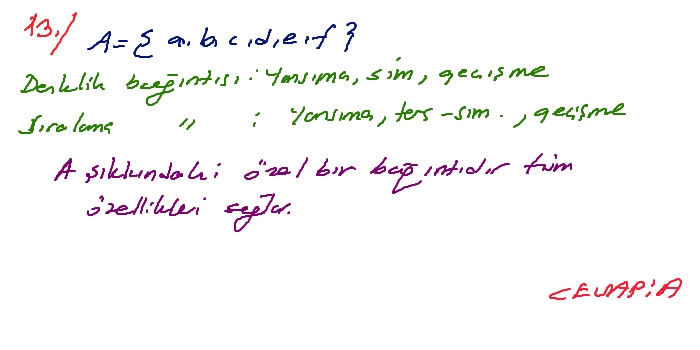 13.) A = { a, b, c, d, e, f }
Denklik bağıntısı : Yansıma, sim, geçişme
Sıralama " : Yansıma, ters-sim., geçişme
A şıkkındaki özel bir bağıntıdır tüm
özellikleri sağlar.
CEVAP: A